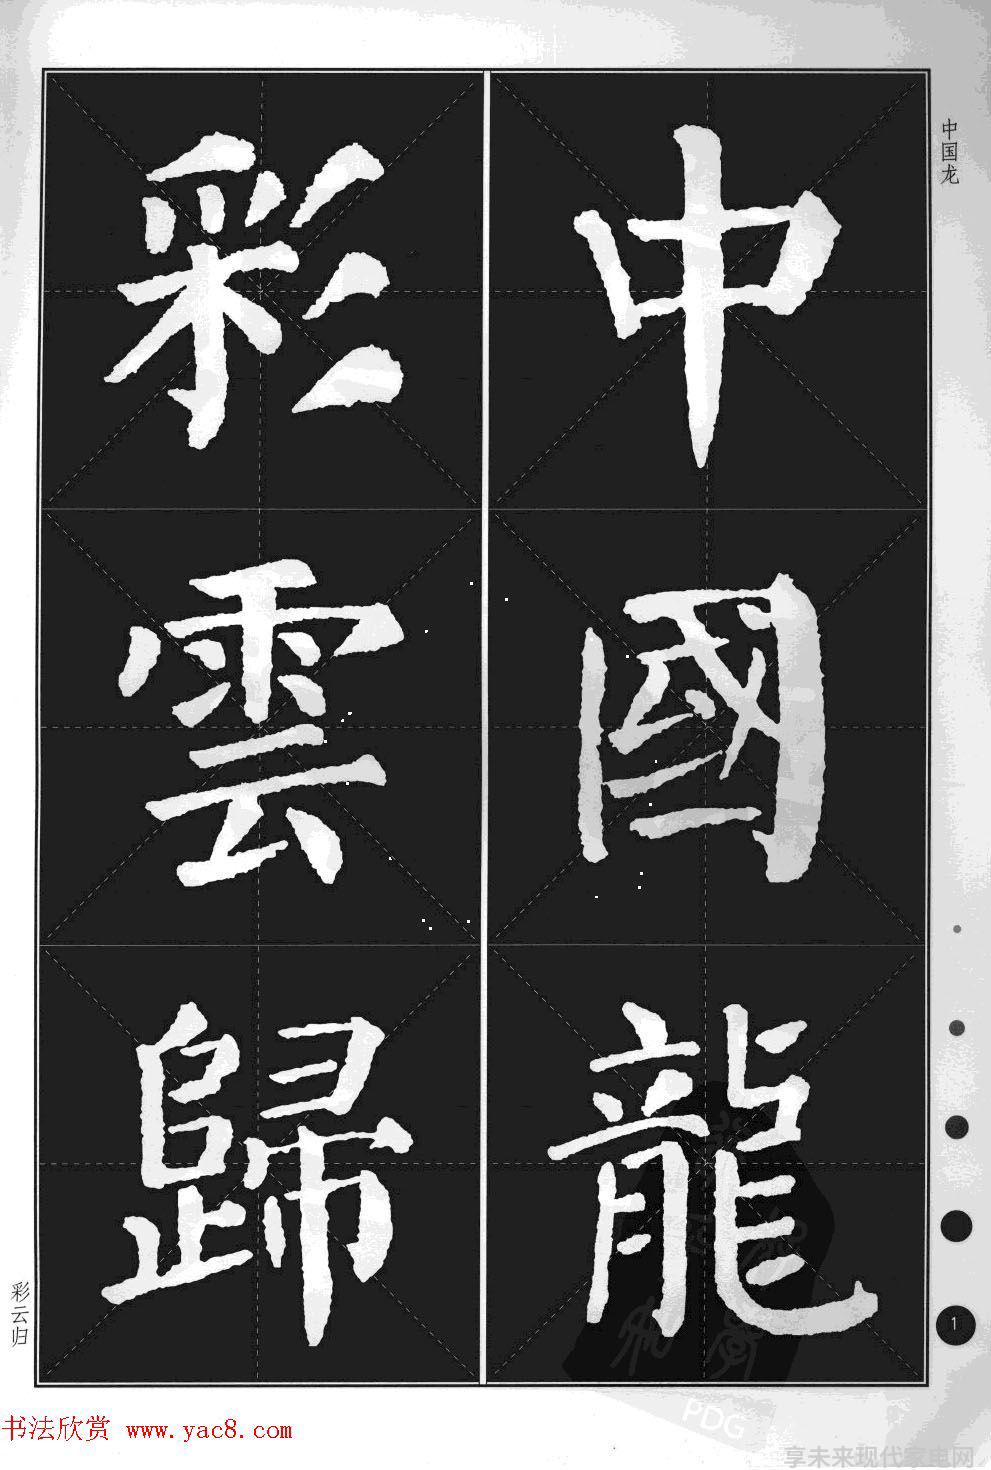 中國龍
彩雲歸
中国龙
彩云归
1
书法欣赏 www.yac8.com
PDG
享未来现代家电网